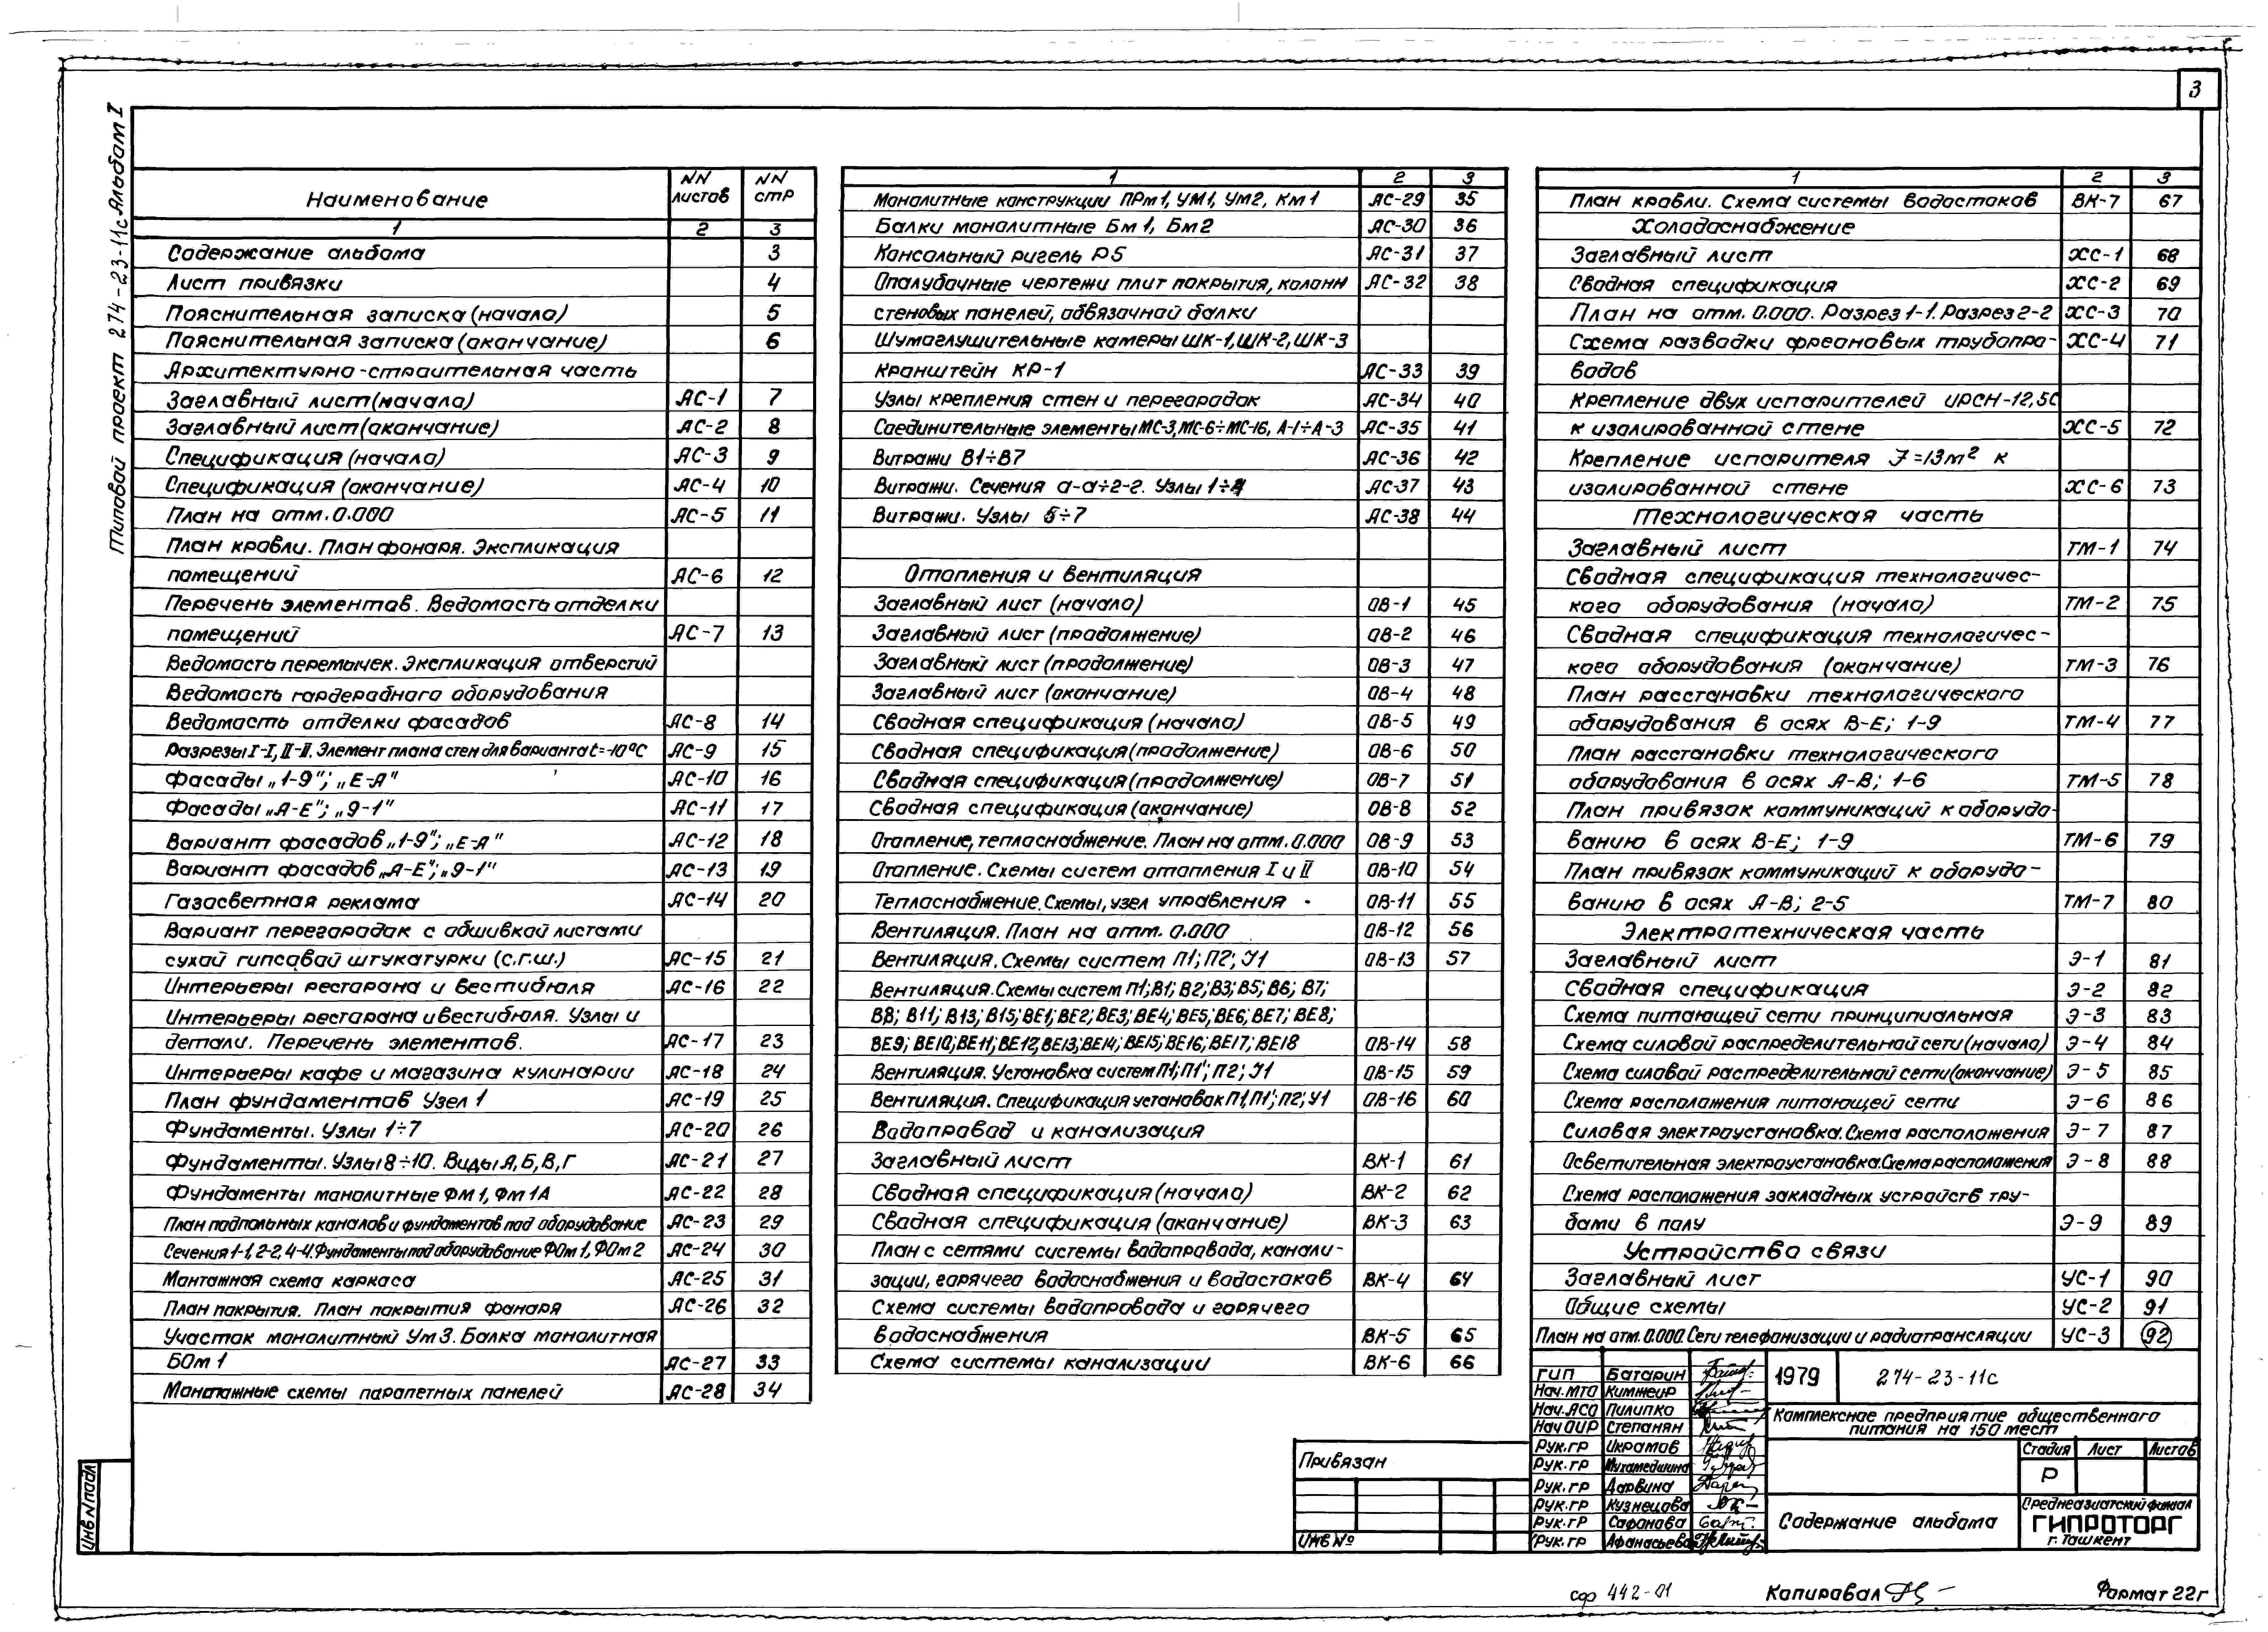 3
Типовой проект 274-23-11с Альбом I
Наименование NN листов NN стр
1 2 3
Содержание альбома 3
Лист привязки 4
Пояснительная записка (начало) 5
Пояснительная записка (окончание) 6
Архитектурно-строительная часть
Заглавный лист (начало) АС-1 7
Заглавный лист (окончание) АС-2 8
Спецификация (начало) АС-3 9
Спецификация (окончание) АС-4 10
План на отм. 0.000 АС-5 11
План кровли. План фонаря. Экспликация
помещений АС-6 12
Перечень элементов. Ведомость отделки
помещений АС-7 13
Ведомость перемычек. Экспликация отверстий
Ведомость гардеробного оборудования
Ведомость отделки фасадов АС-8 14
Разрезы I-I, II-II. Элемент плана стен для варианта t=-10°С АС-9 15
Фасады „1-9"; „Е-А" АС-10 16
Фасады „А-Е"; „9-1" АС-11 17
Вариант фасадов „1-9"; „Е-А" АС-12 18
Вариант фасадов „А-Е"; „9-1" АС-13 19
Газосветная реклама АС-14 20
Вариант перегородок с обшивкой листами
сухой гипсовой штукатурки (с.г.ш.) АС-15 21
Интерьеры ресторана и вестибюля АС-16 22
Интерьеры ресторана и вестибюля. Узлы и
детали. Перечень элементов. АС-17 23
Интерьеры кафе и магазина кулинарии АС-18 24
План фундаментов Узел 1 АС-19 25
Фундаменты. Узлы 1÷7 АС-20 26
Фундаменты. Узлы 8÷10. Виды А, Б, В, Г АС-21 27
Фундаменты монолитные Фм 1, Фм 1А АС-22 28
План подпольных каналов и фундаментов под оборудование АС-23 29
Сечения 1-1, 2-2, 4-4. Фундаменты под оборудование ФОм 1, ФОм 2 АС-24 30
Монтажная схема каркаса АС-25 31
План покрытия. План покрытия фонаря АС-26 32
Участок монолитный Ум 3. Балка монолитная
БОм 1 АС-27 33
Монтажные схемы парапетных панелей АС-28 34
1 2 3
Монолитные конструкции ПРм 1, УМ1, Ум2, Км 1 АС-29 35
Балки монолитные Бм 1, Бм 2 АС-30 36
Консольный ригель Р5 АС-31 37
Опалубочные чертежи плит покрытия, колонн АС-32 38
стеновых панелей, обвязочной балки
Шумоглушительные камеры ШК-1, ШК-2, ШК-3
Кранштейн КР-1 АС-33 39
Узлы крепления стен и перегородок АС-34 40
Соединительные элементы МС-3, МС-6÷МС-16, А-1÷А-3 АС-35 41
Витражи В1÷В7 АС-36 42
Витражи. Сечения а-а÷г-г. Узлы 1÷4 АС-37 43
Витражи. Узлы 5÷7 АС-38 44
Отопления и вентиляция
Заглавный лист (начало) ОВ-1 45
Заглавный лист (продолжение) ОВ-2 46
Заглавный лист (продолжение) ОВ-3 47
Заглавный лист (окончание) ОВ-4 48
Сводная спецификация (начало) ОВ-5 49
Сводная спецификация (продолжение) ОВ-6 50
Сводная спецификация (продолжение) ОВ-7 51
Сводная спецификация (окончание) ОВ-8 52
Отопление, теплоснабжение. План на отм. 0.000 ОВ-9 53
Отопление. Схемы систем отопления I и II ОВ-10 54
Теплоснабжение. Схемы, узел управления ОВ-11 55
Вентиляция. План на отм. 0.000 ОВ-12 56
Вентиляция. Схемы систем П1; П2; У1 ОВ-13 57
Вентиляция. Схемы систем П1; В1; В2; В3; В5; В6; В7;
В8; В11; В13; В15; ВЕ1; ВЕ2; ВЕ3; ВЕ4; ВЕ5; ВЕ6; ВЕ7; ВЕ8;
ВЕ9; ВЕ10; ВЕ11; ВЕ12; ВЕ13; ВЕ14; ВЕ15; ВЕ16; ВЕ17; ВЕ18 ОВ-14 58
Вентиляция. Установка систем П1; П1'; П2; У1 ОВ-15 59
Вентиляция. Спецификация установок П1, П1'; П2; У1 ОВ-16 60
Водопровод и канализация
Заглавный лист ВК-1 61
Сводная спецификация (начало) ВК-2 62
Сводная спецификация (окончание) ВК-3 63
План с сетями системы водопровода, канали-
зации, горячего водоснабжения и водостоков ВК-4 64
Схема системы водопровода и горячего
водоснабжения ВК-5 65
Схема системы канализации ВК-6 66
1 2 3
План кровли. Схема системы водостоков ВК-7 67
Холодоснабжение
Заглавный лист ХС-1 68
Сводная спецификация ХС-2 69
План на отм. 0.000. Разрез 1-1. Разрез 2-2 ХС-3 70
Схема разводки фреоновых трубопро- ХС-4 71
водов
Крепление двух испарителей ИРСН-12,5С
к изолированной стене ХС-5 72
Крепление испарителя F=13м² к
изолированной стене ХС-6 73
Технологическая часть
Заглавный лист ТМ-1 74
Сводная спецификация технологичес-
кого оборудования (начало) ТМ-2 75
Сводная спецификация технологичес-
кого оборудования (окончание) ТМ-3 76
План расстановки технологического
оборудования в осях В-Е; 1-9 ТМ-4 77
План расстановки технологического
оборудования в осях А-В; 1-6 ТМ-5 78
План привязок коммуникаций к оборудо-
ванию в осях В-Е; 1-9 ТМ-6 79
План привязок коммуникаций к оборудо-
ванию в осях А-В; 2-5 ТМ-7 80
Электротехническая часть
Заглавный лист Э-1 81
Сводная спецификация Э-2 82
Схема питающей сети принципиальная Э-3 83
Схема силовой распределительной сети (начало) Э-4 84
Схема силовой распределительной сети (окончание) Э-5 85
Схема расположения питающей сети Э-6 86
Силовая электроустановка. Схема расположения Э-7 87
Осветительная электроустановка. Схема расположения Э-8 88
Схема расположения закладных устройств тру-
бами в полу Э-9 89
Устройства связи
Заглавный лист УС-1 90
Общие схемы УС-2 91
План на отм. 0.000. Сети телефонизации и радиотрансляции УС-3 92
ГИП Батарин
Нач. МТО Кимнеир
Нач. АСО Пилипко
Нач ОИР Степанян
Рук. гр Икрамов
Рук. гр Мухамедшина
Рук. гр Дарвина
Рук. гр Кузнецова
Рук. гр Сафонова
Рук. гр Афанасьева
1979 274-23-11с
Комплексное предприятие общественного
питания на 150 мест
Стадия Лист Листов
Р
Содержание альбома
Среднеазиатский филиал
ГИПРОТОРГ
г. Ташкент
Привязан
Инв №
Инв N подл
сф 442-01
Копировал
Формат 22г